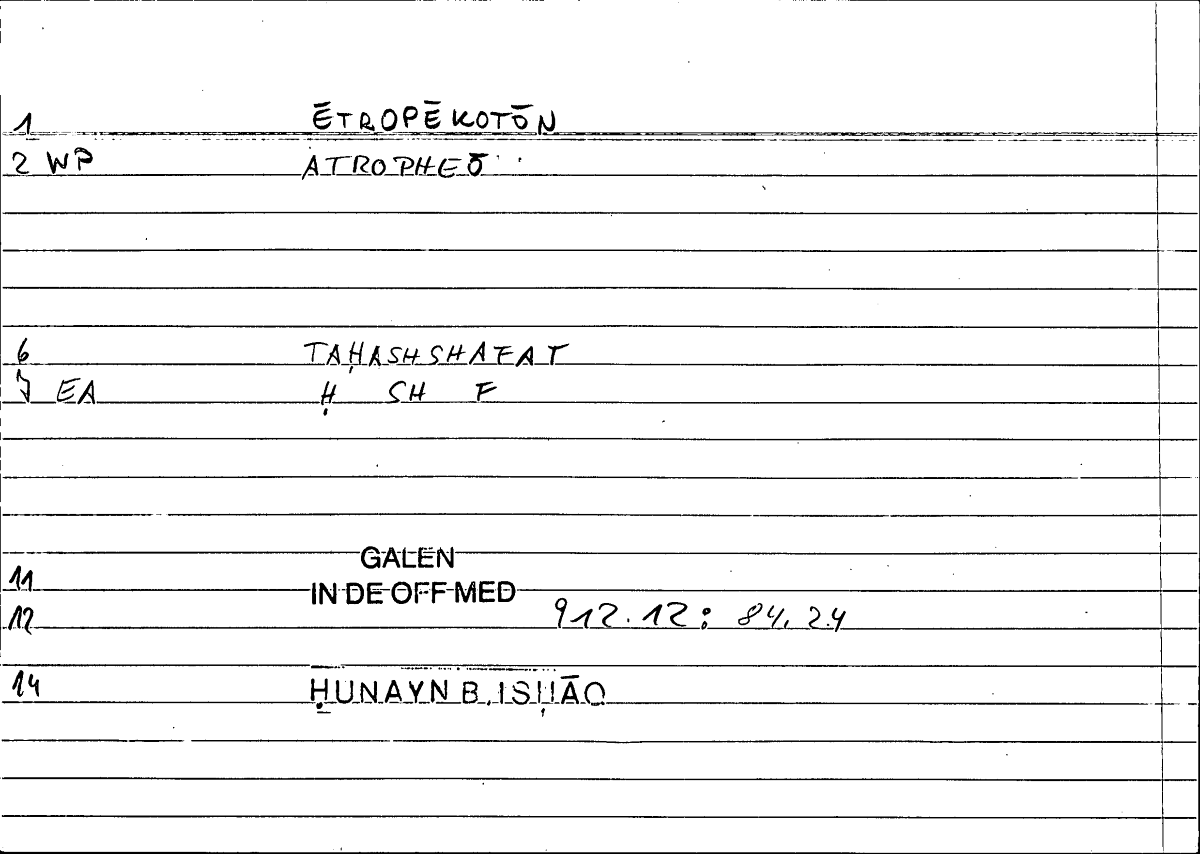 1 ĒTROPĒKOTŌN
2 WP ATROPHEŌ
6 TAḤASHSHAFAT
7 EA Ḥ SH F
GALEN
11 IN DE OFF MED
12 912.12: 84,24
14 ḤUNAYN B. ISḤĀQ